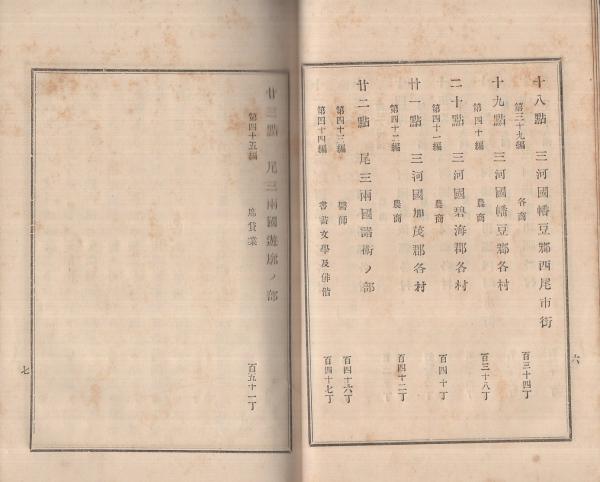 十八點　三河國幡豆郡西尾市街
第三十九編　各商　百三十四丁
十九點　三河國幡豆郡各村
第四十編　農商　百三十八丁
二十點　三河國碧海郡各村
第四十一編　農商　百四十丁
廿一點　三河國加茂郡各村
第四十二編　農商　百四十二丁
廿二點　尾三兩國諸術ノ部
第四十三編　醫師　百四十六丁
第四十四編　書畫文學及俳偕　百四十七丁
六
廿三點　尾三兩國遊廓ノ部
第四十五編　席貸業　百五十一丁
七